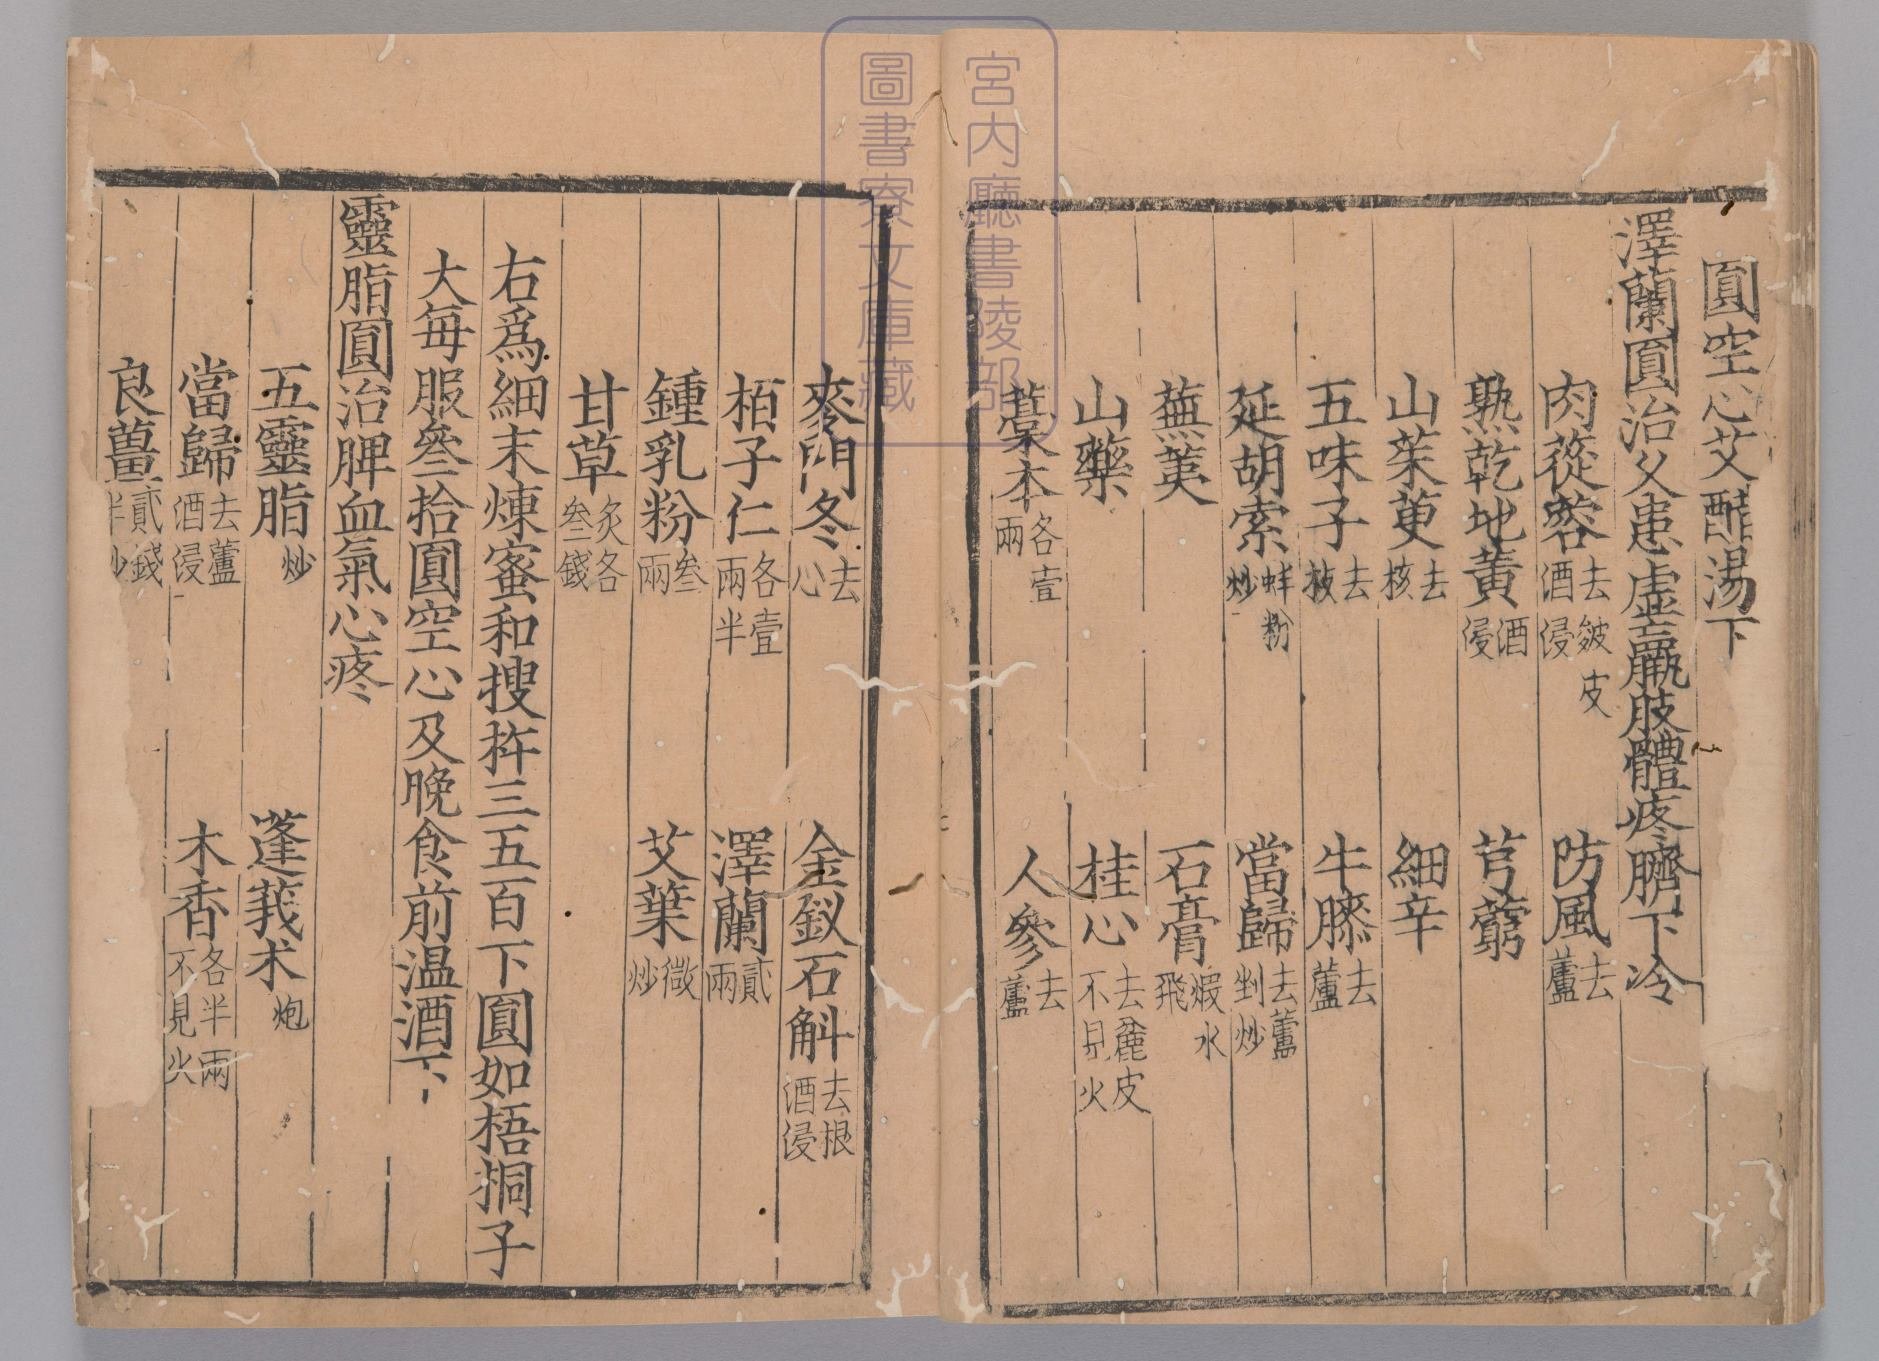 圓空心艾醋湯下
澤蘭圓治父患虛羸肢體疼臍下冷
肉蓯蓉去皴皮酒浸　防風去蘆
熟乾地黃酒浸　芎藭
山茱萸去核　細辛
五味子去枝　牛膝去蘆
延胡索蚌粉炒　當歸去蘆剉炒
蕪荑　石膏煆水飛
山藥　桂心去麄皮不見火
藁本各壹兩　人參去蘆
麥門冬去心　金釵石斛去根酒浸
栢子仁各壹兩半　澤蘭貳兩
鍾乳粉叁兩　艾葉微炒
甘草炙各叁錢
右爲細末煉蜜和搜杵三五百下圓如梧桐子
大每服叁拾圓空心及晚食前温酒下
靈脂圓治脾血氣心疼
五靈脂炒　蓬莪朮炮
當歸去蘆酒浸　木香各半兩不見火
良薑貳錢半炒
宮内廳書陵部
圖書寮文庫藏